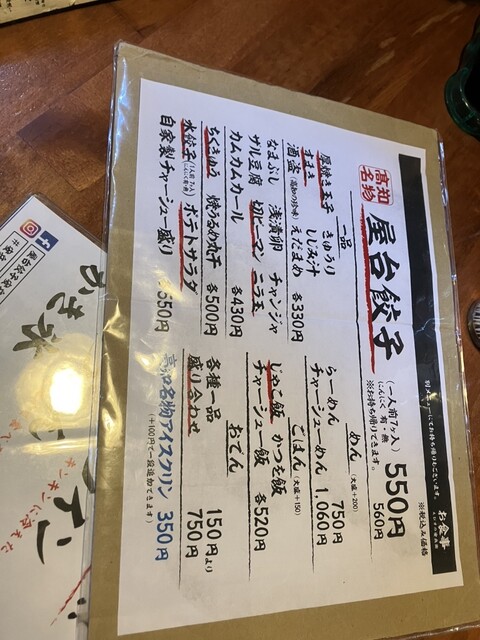 お食事
別メニューにてお持ち帰りもございます。
※税込み価格
高知名物
屋台餃子
(一人前7ヶ入)
にんにく 有・無
550円
560円
※お持ち帰りできます。
一品
きゅうり
しじみ汁
厚焼き玉子
すまき
酒盗(高知の珍味)
えだまめ
各330円
なまぶし
浅漬卵
チャンジャ
サル豆腐
切ピーマン
ニラ玉
カムカムカール
各430円
ちくきゅう
焼うるめ丸干
各500円
水餃子
ポテトサラダ
自家製チャーシュー盛り
550円
めん(大盛+200)
らーめん
750円
チャーシューめん
1,060円
ごはん(大盛+150)
じゃこ飯
かつを飯
チャーシュー飯
各520円
おでん
各種一品
150円より
盛り合わせ
750円
高知名物アイスクリン
350円
(+100円で一段追加できます)